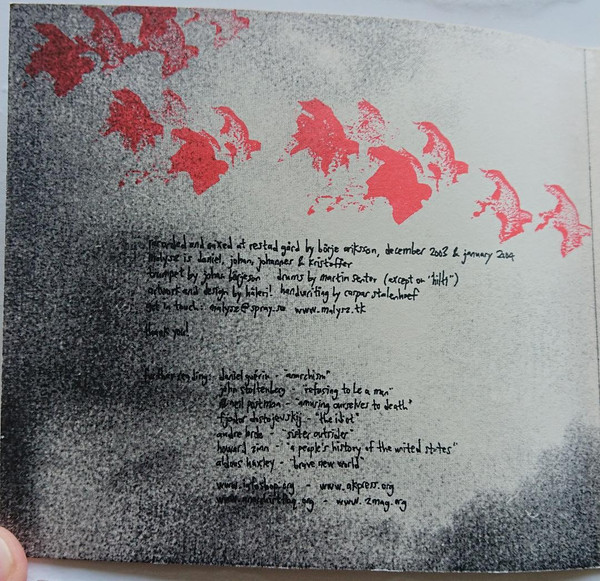 recorded and mixed at restad gård by börje eriksson, december 2003 & january 2004
malysz is daniel, johan, johannes & kristoffer
trumpet by johan börjeson drums by martin sentor (except on "hilti")
artwork and design by håleri! handwriting by caspar stalenhoef
get in touch: malysz@spray.se www.malysz.tk
thank you!
further reading: daniel guérin - "anarchism"
john stoltenberg - "refusing to be a man"
neil postman - "amusing ourselves to death"
fjodor dostojevskij - "the idiot"
audre lorde - "sister outsider"
howard zinn - "a people's history of the united states"
aldous huxley - "brave new world"
www.infoshop.org - www.akpress.org
www. .org - www.zmag.org